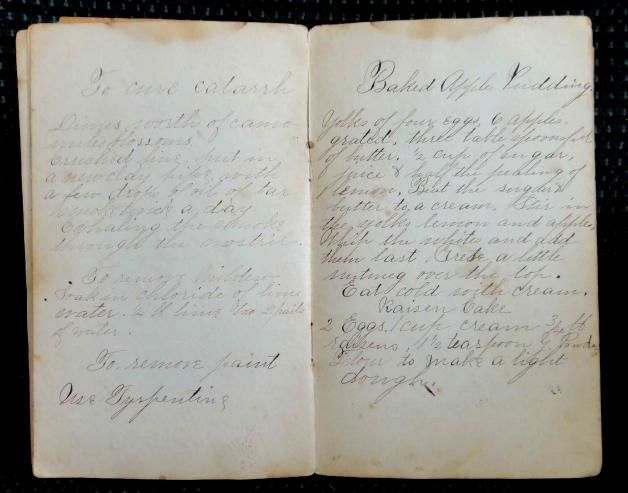 To cure catarrh
Dimes worth of camo
mile blossoms
Crushed fine, put in
a new clay pipe with
a few drops of oil of tar
smoke twice a day
Exhaling the smoke
through the nostril.
To remove Mildew
Soak in chloride of lime
water. lime to 2 pails
of water.
To remove paint
Use Tyrpentine
Baked Apple Pudding.
Yolks of four eggs, 6 apples
grated, three table spoonsful
of butter. ½ cup of sugar,
juice & half the pealing of
lemon. Beat the sugar &
butter to a cream. Stir in
the yolks lemon and apples,
Whip the whites and add
them last. a little
nutmeg over the top.
Eat cold with cream.
Raisen Cake
2 Eggs, 1 cup cream ¾ lb
raisens, 1½ teaspoon
Flour to make a light
dough.